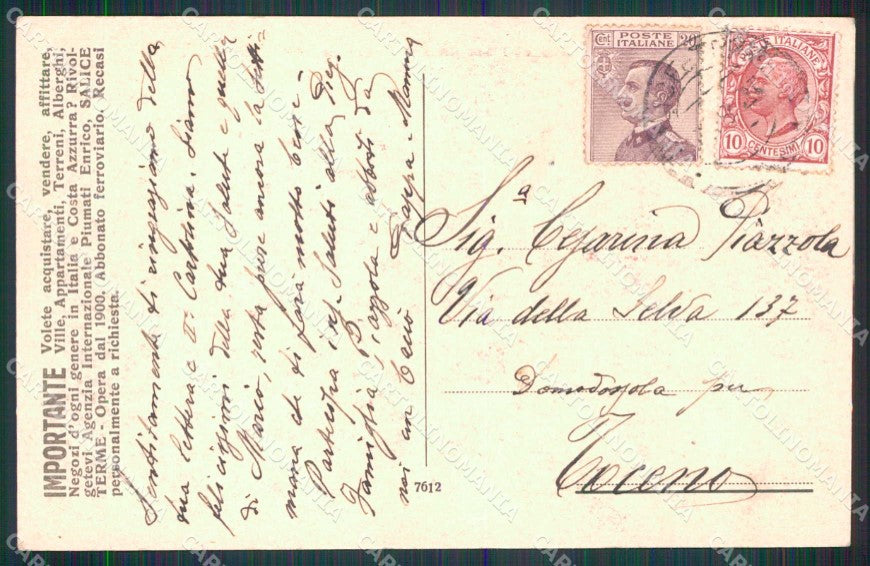 IMPORTANTE Volete acquistare, vendere, affittare,
Ville, Appartamenti, Terreni, Alberghi,
Negozi d'ogni genere in Italia e Costa Azzurra? Rivol-
getevi Agenzia Internazionale Piumati Enrico, SALICE
TERME - Opera dal 1900. Abbonato ferroviario. Recasi
personalmente a richiesta.
Sentitamente ti ringraziamo della
tua lettera e IIa Cartolina. Siamo
felicissimi della tua salute e quella
di Mario, resta pure ancora la
mana che ti farà molto bene.
Partecipa inf. saluti alla Preg.
Famiglia P. Piazzola e abbiti da
noi un bacio Pappa e Mamma
7612
Cent POSTE 20
ITALIANE
POSTE ITALIANE
10 CENTESIMI 10
Sig.a Cesarina Piazzola
Via della Selva 137
Domodossola per
Toceno
CARTOLINOMANIA